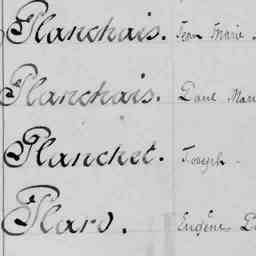 Planchais. Jean Marie
Planchais. Paul Marie
Planchet. Joseph
Plard. Eugène